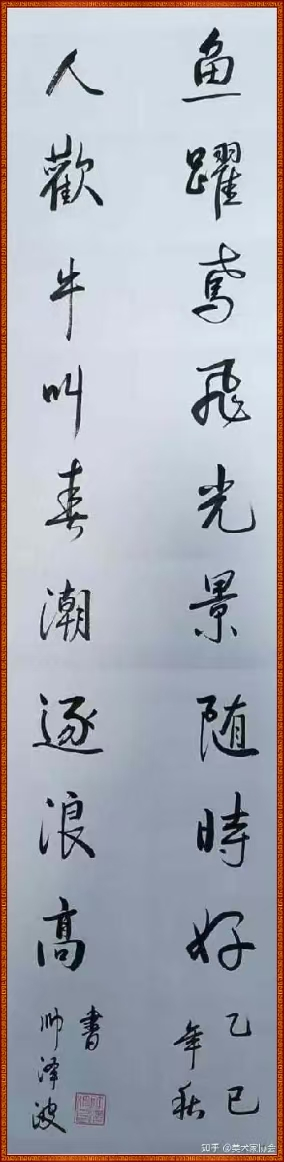 鱼躍鸢飛光景随時好
乙巳
年秋
人歡牛叫春潮逐浪高
書
帅泽波
知乎 @美术家协会